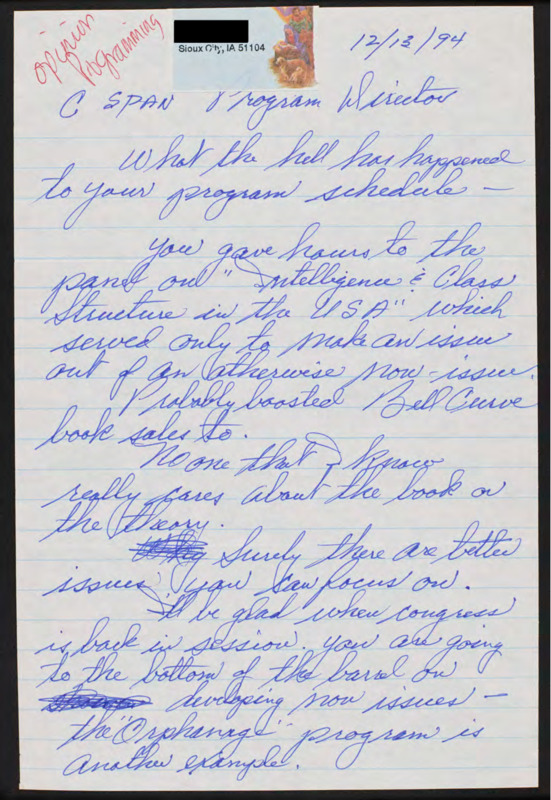 opinion
Programming
Sioux City, IA 51104
12/13/94
C SPAN Program Director
What the hell has happened
to your program schedule —
You gave hours to the
panel on "Intelligence & Class
Structure in the USA" which
served only to make an issue
out of an otherwise non-issue.
Probably boosted Bell Curve
book sales to.
No one that I know
really cares about the book or
the theory.
Surely there are better
issues you can focus on.
I'll be glad when congress
is back in session. You are going
to the bottom of the barrel on
developing non issues —
the "Orphanage" program is
another example.